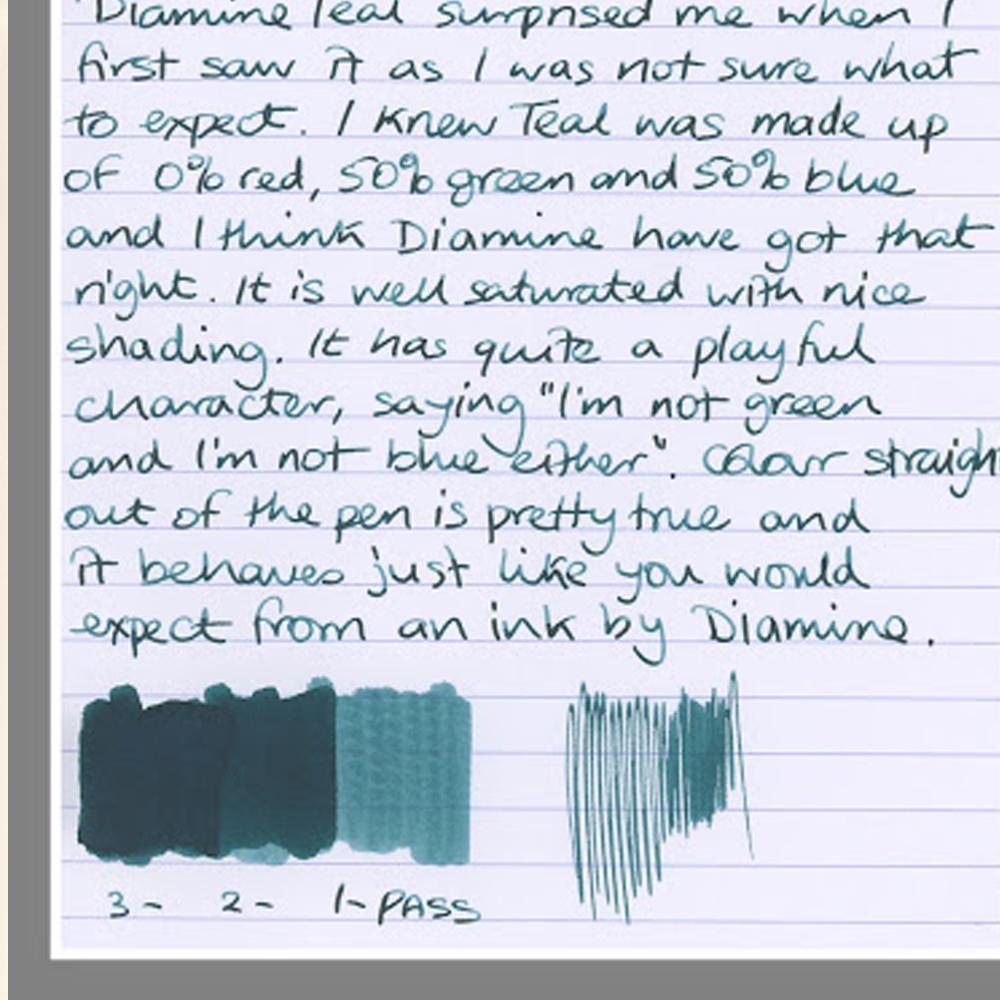 Diamine Teal surprised me when I
first saw it as I was not sure what
to expect. I knew Teal was made up
of 0% red, 50% green and 50% blue
and I think Diamine have got that
right. It is well saturated with nice
shading. It has quite a playful
character, saying "I'm not green
and I'm not blue either". Colour straigh
out of the pen is pretty true and
it behaves just like you would
expect from an ink by Diamine.
3- 2- 1-PASS